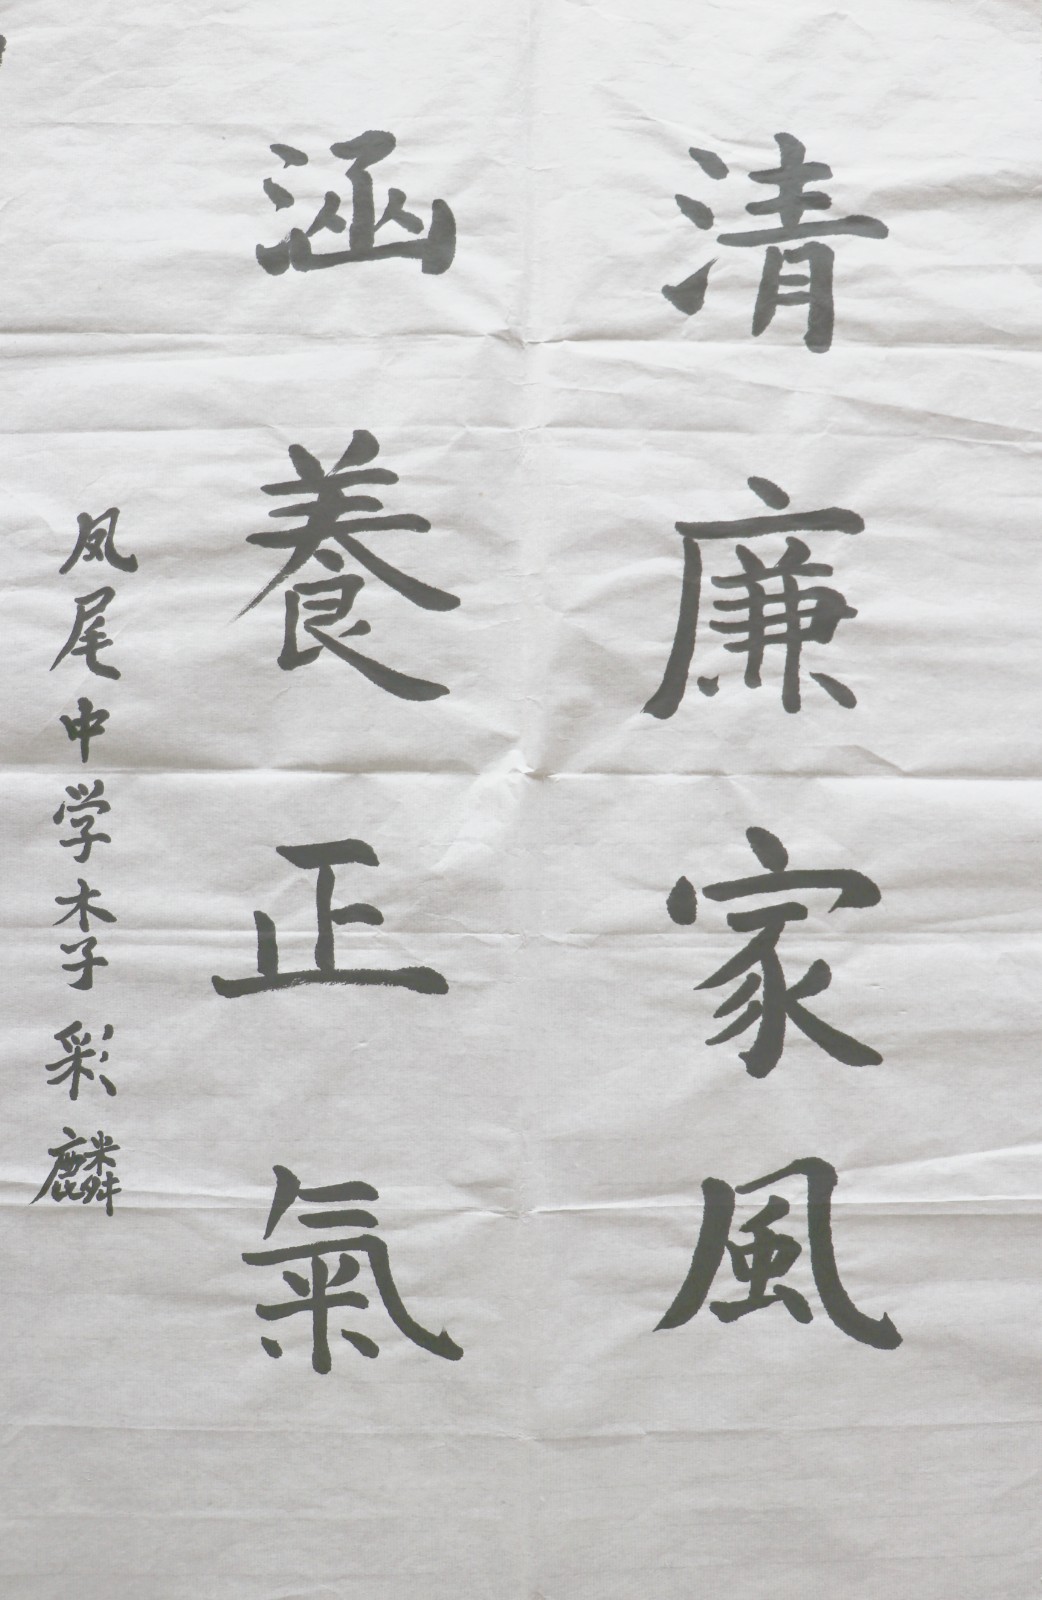 清廉家風
涵養正氣
凤尾中学李彩麟